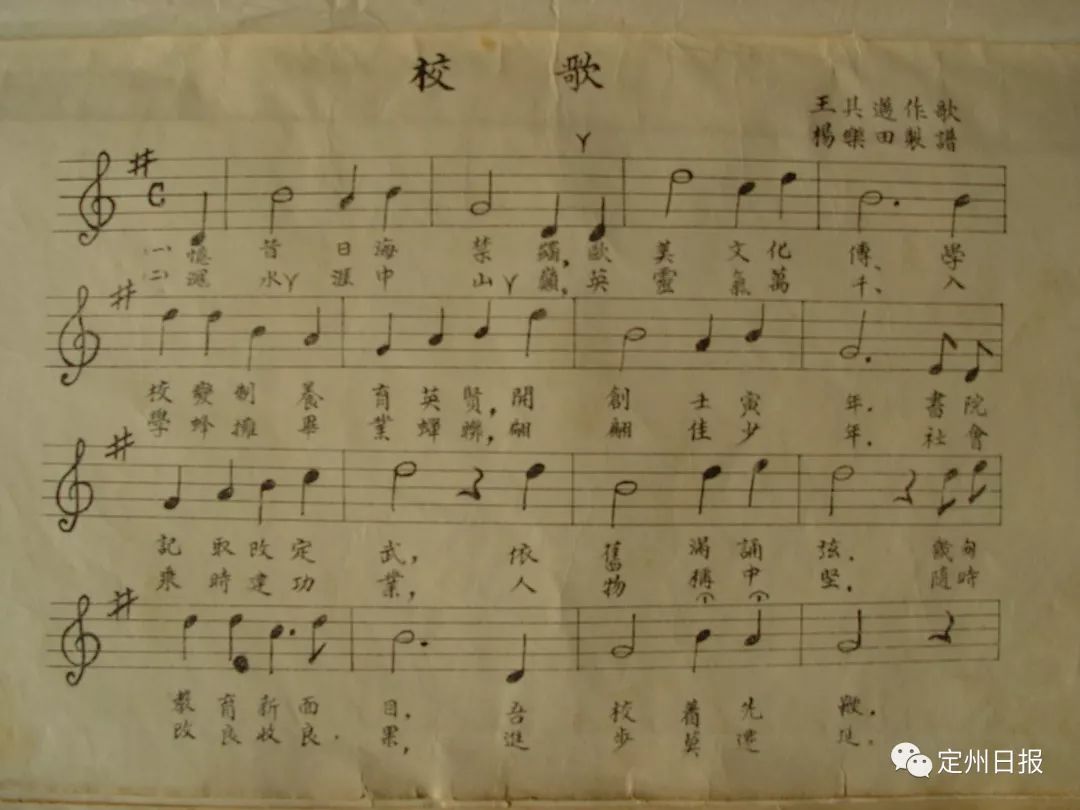 校 歌
王其邁作歌
楊樂田製譜
(一)憶 昔 日 海 禁 蠲, 歐 美 文 化 傳、 學
(二)滱 水 涯 中 山 巔, 英 靈 氣 萬 千、 入
校 變 制 養 育 英 賢, 開 創 士 寅 年. 書 院
學 蜂 擁 畢 業 蟬 聯, 翩 翩 佳 少 年. 社 會
記 取 改 定 武, 依 舊 滿 誦 弦. 幾 旬
乘 時 建 功 業, 人 物 稱 中 堅. 隨 時
教 育 新 面 目, 吾 校 著 先 鞭.
改 良 收 良. 果, 進 步 莫 遷 延.
定州日报